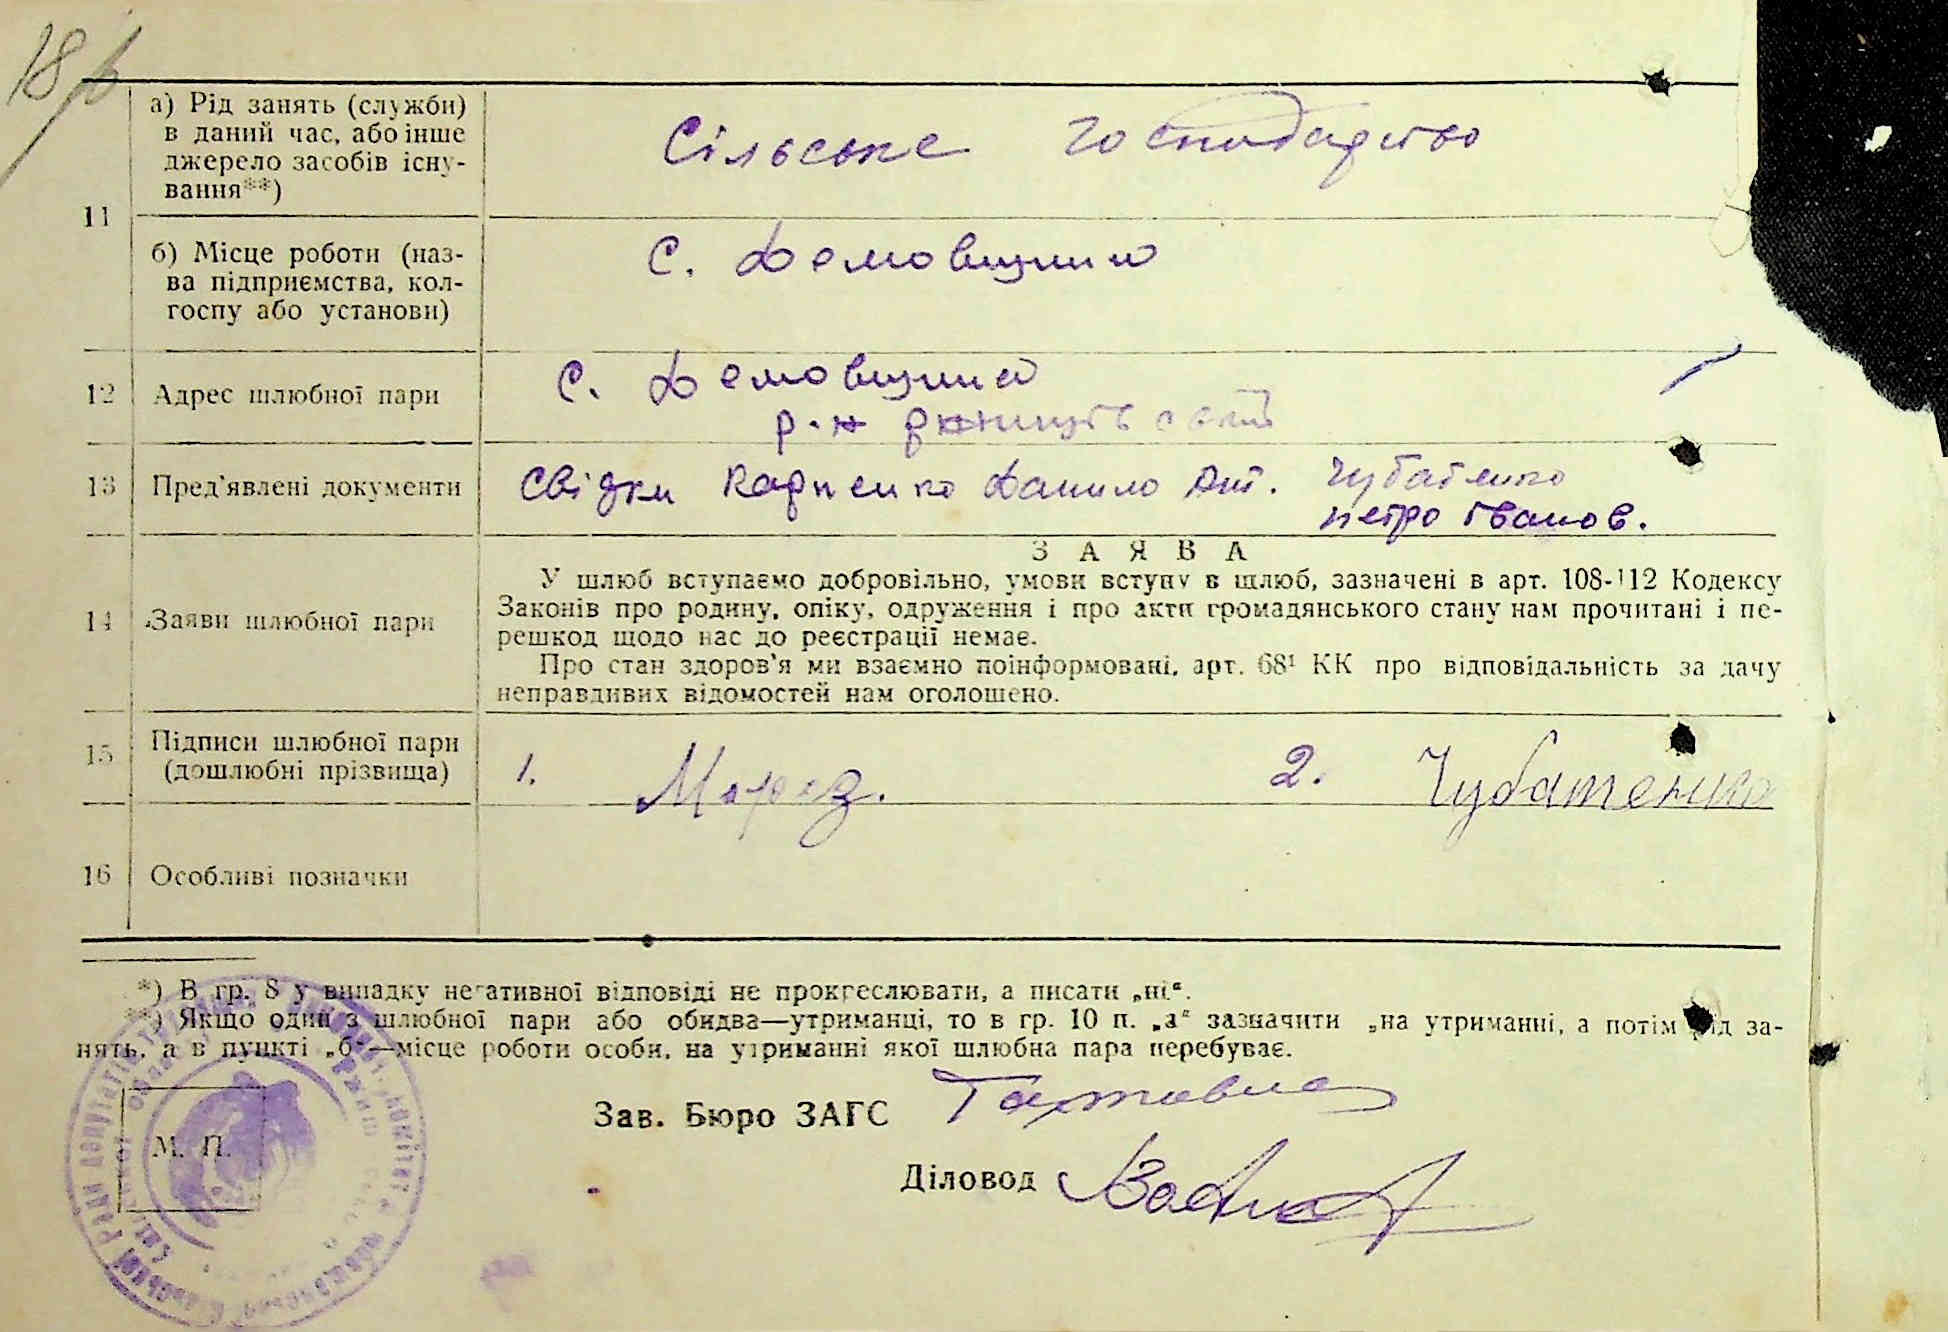 18
11
а) Рід занять (служби)
в даний час, або інше
джерело засобів існу-
вання**)
Сільське господарство
б) Місце роботи (наз-
ва підприємства, кол-
госпу або установи)
с. Демовщина
12 Адрес шлюбної пари
с. Демовщина
р-н
13 Пред'явлені документи
свідки Карпенко Данило Ант. Чубатенко
петро Іванов.
14 Заяви шлюбної пари
ЗАЯВА
У шлюб вступаємо добровільно, умови вступу в шлюб, зазначені в арт. 108-112 Кодексу
Законів про родину, опіку, одруження і про акти громадянського стану нам прочитані і пе-
решкод щодо нас до реєстрації немає.
Про стан здоров'я ми взаємно поінформовані, арт. 68¹ КК про відповідальність за дачу
неправдивих відомостей нам оголошено.
15 Підписи шлюбної пари
(дошлюбні прізвища)
1. Мороз. 2. Чубатенко
16 Особливі позначки
*) В гр. 8 у випадку негативної відповіді не прокреслювати, а писати „ні“.
**) Якщо один з шлюбної пари або обидва—утриманці, то в гр. 10 п. „а“ зазначити „на утриманні, а потім рід за-
нять, а в пункті „б“—місце роботи особи, на утриманні якої шлюбна пара перебуває.
Зав. Бюро ЗАГС
Діловод
М. П.